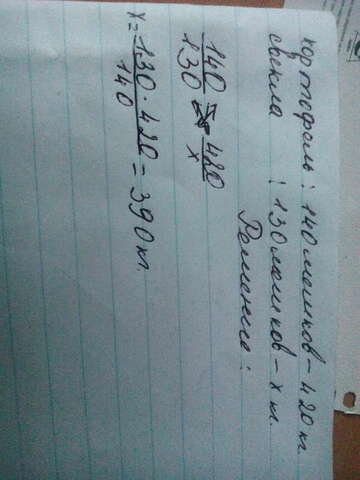 картофель : 140 мешков - 420 кг
свекла : 130 мешков - x кг.
Решение :
140/130 = 420/x
x = 130 · 420/140 = 390 кг.